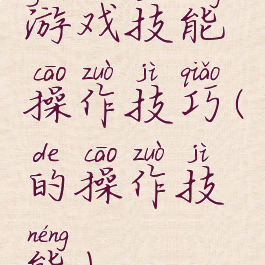 游戏技能
cāo zuò jì qiǎo
操作技巧(
de cāo zuò jì
的操作技
néng
能)